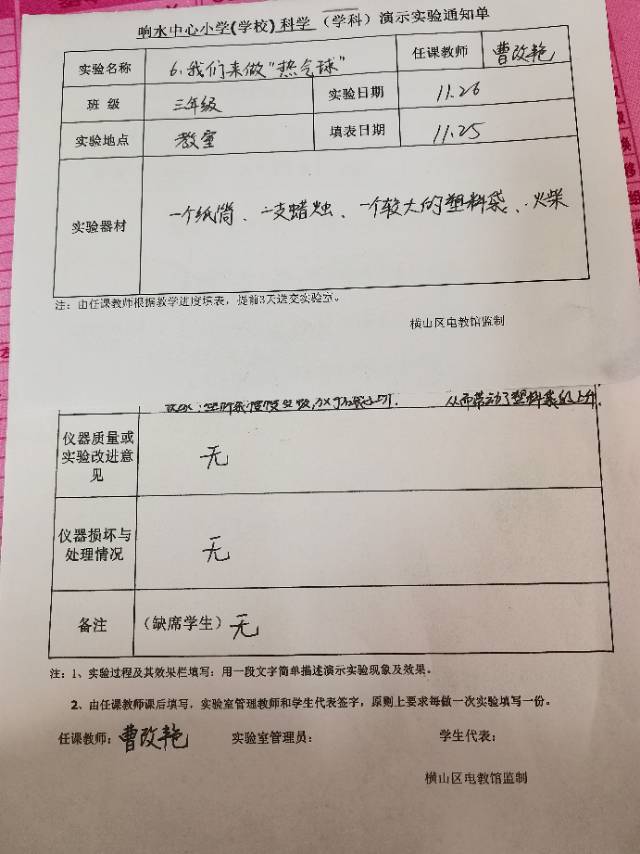 响水中心小学(学校)科学(学科)演示实验通知单
实验名称 6.我们来做"热气球" 任课教师 曹改艳
班 级 三年级 实验日期 11.26
实验地点 教室 填表日期 11.25
实验器材 一个纸筒、一支蜡烛、一个较大的塑料袋、火柴
注：由任课教师根据教学进度填表，提前3天送交实验室。
横山区电教馆监制
从而带动了塑料袋的上升.
仪器质量或实验改进意见 无
仪器损坏与处理情况 无
备注 (缺席学生) 无
注：1、实验过程及其效果栏填写：用一段文字简单描述演示实验现象及效果。
2、由任课教师课后填写，实验室管理教师和学生代表签字，原则上要求每做一次实验填写一份。
任课教师：曹改艳 实验室管理员： 学生代表：
横山区电教馆监制